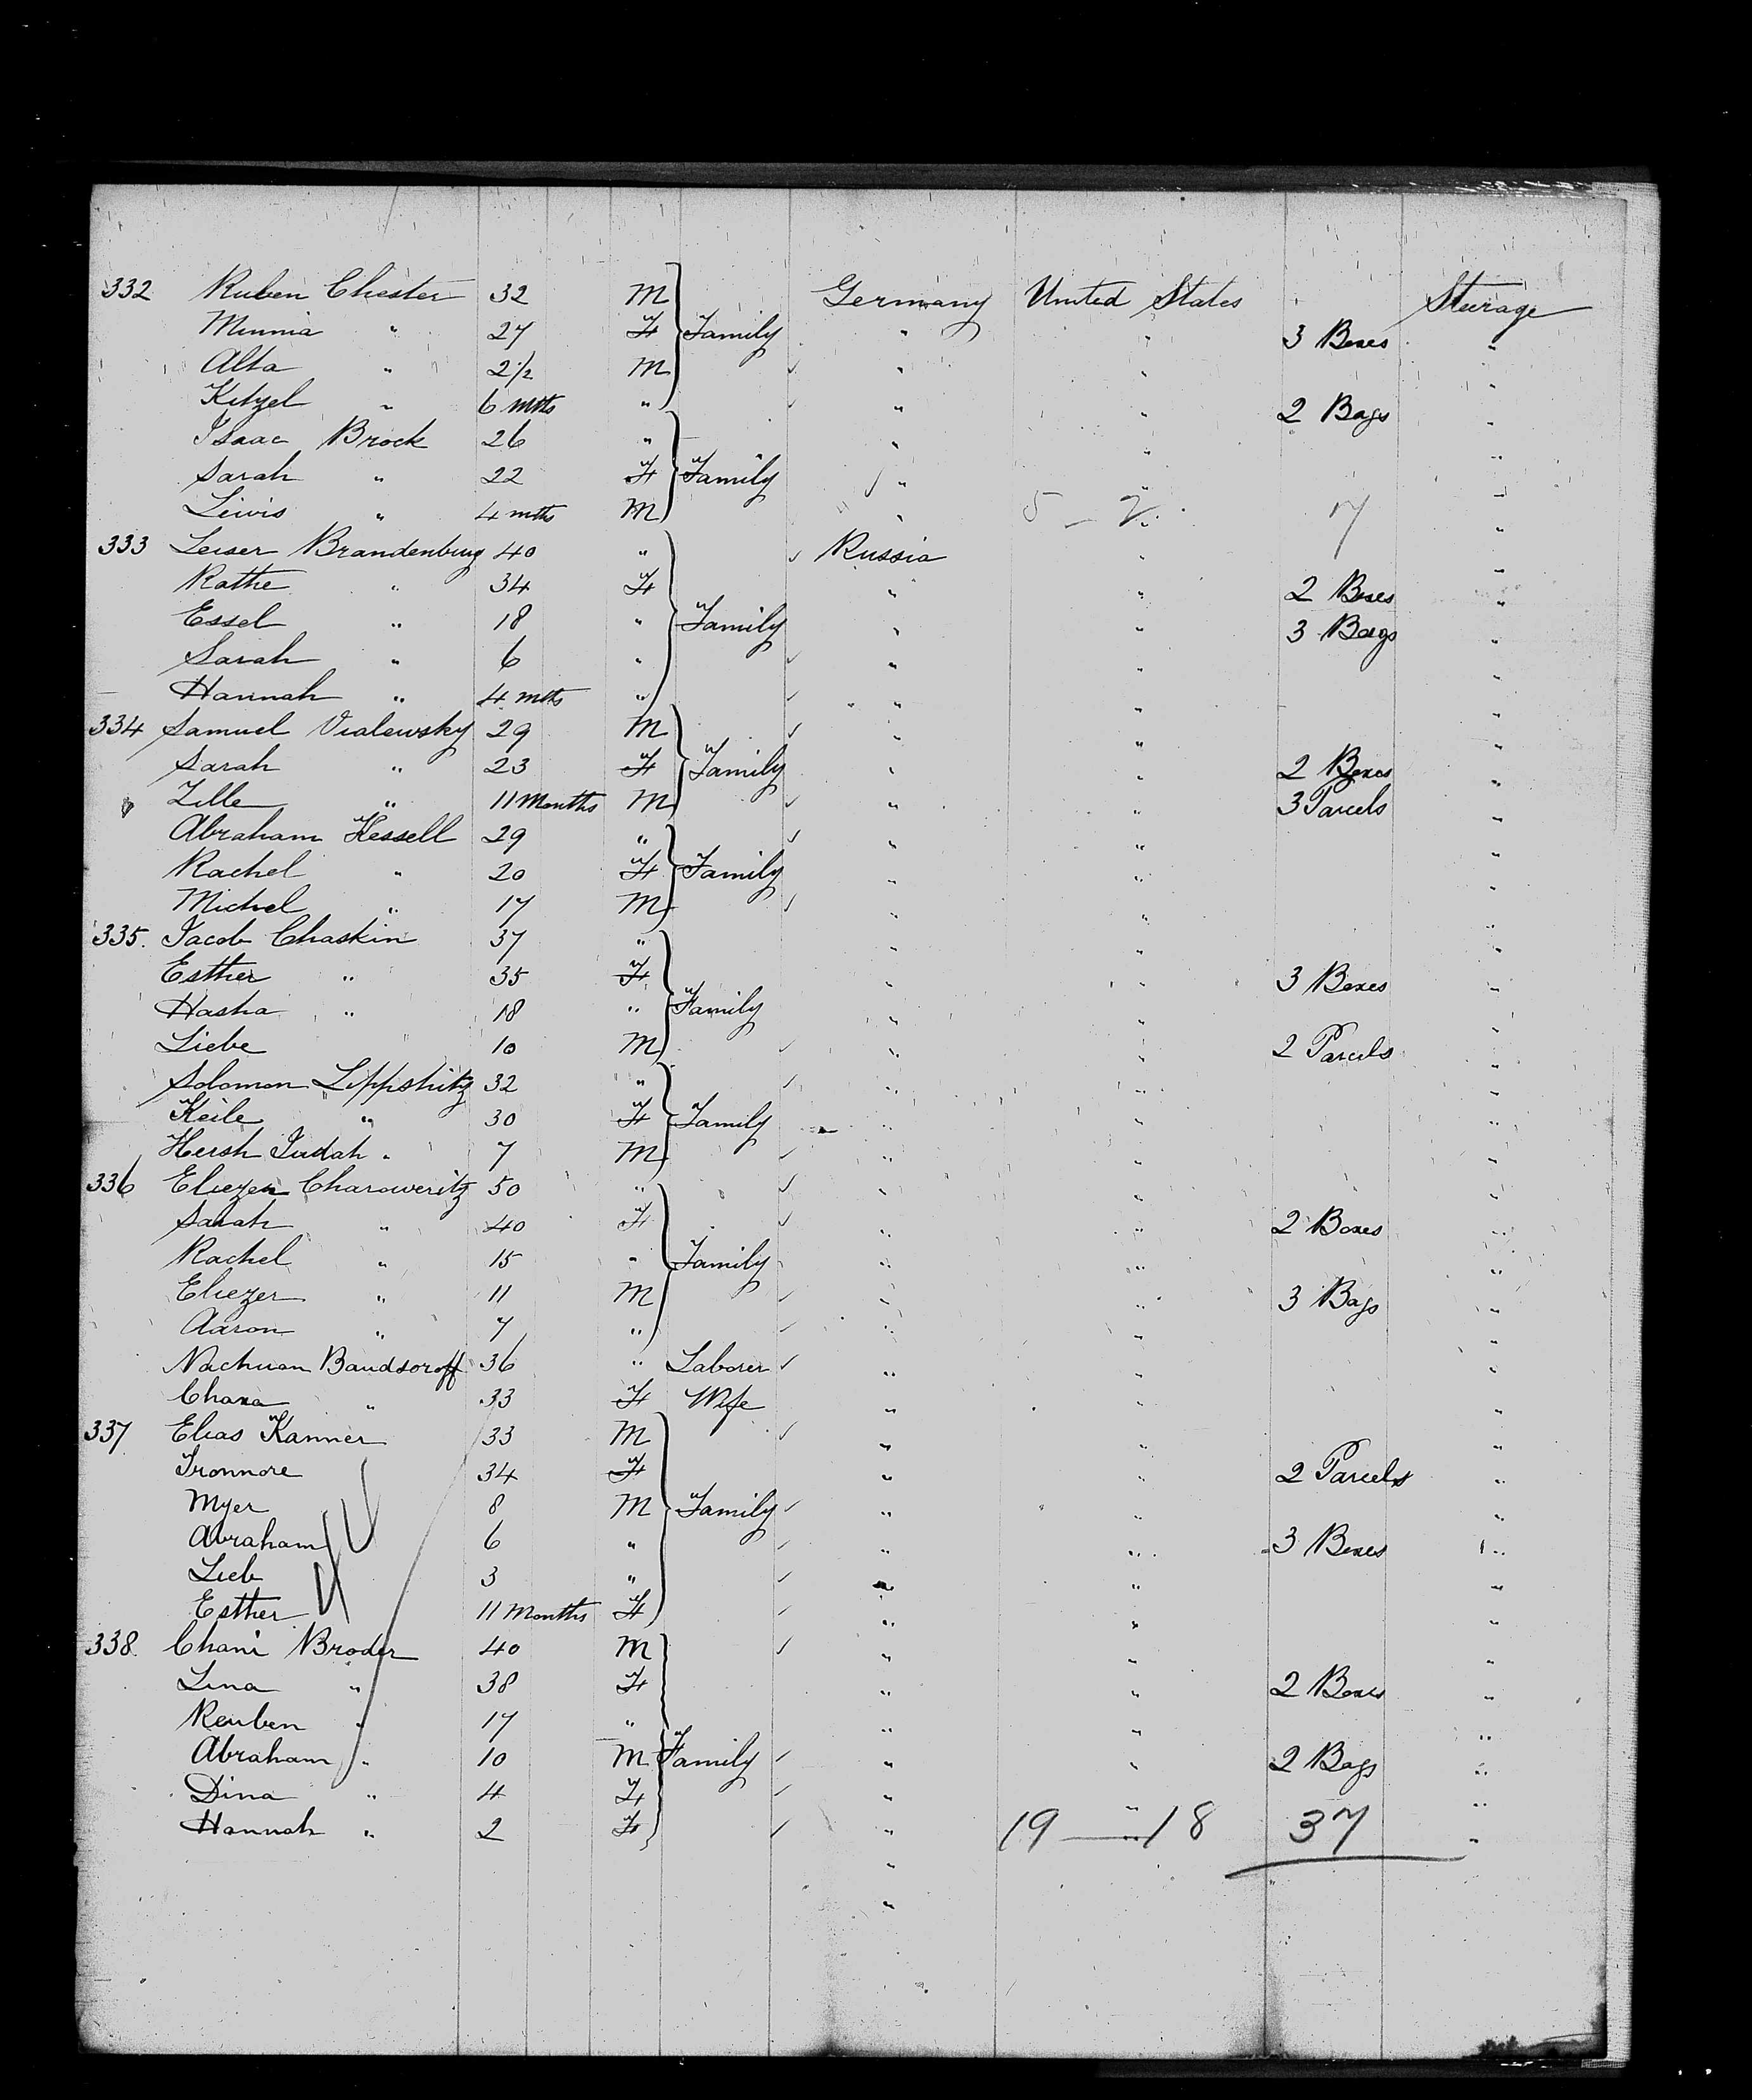 332 Ruben Chester 32 M Germany United States Steerage
Minnia " 27 F Family " " 3 Boxes "
Alta " 2 1/2 M " " "
Kitzel " 6 mths " " " 2 Bags "
Isaac Brock 26 " " " "
Sarah " 22 F Family " " "
Lewis " 4 mths M " 5 - 2 " 7 "
333 Leiser Brandenburg 40 " Russia " "
Rathe " 34 F " " 2 Boxes "
Essel " 18 " Family " " 3 Bags "
Sarah " 6 " " " "
Hannah " 4 mths " " " "
334 Samuel Vialewsky 29 M " " "
Sarah " 23 F Family " " 2 Boxes "
Zille " 11 Months M " " 3 Parcels "
Abraham Kessell 29 " " " "
Rachel " 20 F Family " " "
Michel " 17 M " " "
335. Jacob Chaskin 37 " " " "
Esther " 35 F " " 3 Boxes "
Hasha " 18 " Family " " "
Liebe 10 M " " 2 Parcels "
Solomon Lippshitz 32 " " " "
Keile " 30 F Family " " "
Hersh Judah " 7 M " " "
336 Eliezer Charoweritz 50 " " " "
Sarah " 40 F " " 2 Boxes "
Rachel " 15 " Family " " "
Eliezer " 11 M " " 3 Bags "
Aaron " 7 " " " "
Nachman Baudsoroff 36 " Laborer " " "
Chana " 33 F Wife " " "
337 Elias Kanner 33 M " " "
34 F " " 2 Parcels "
Myer 8 M Family " " "
Abraham 6 " " " 3 Boxes "
Lieb 3 " " " "
Esther 11 Months F " " "
338. Chani Broder 40 M " " "
Lina " 38 F " " 2 Boxes "
Reuben " 17 " " " "
Abraham " 10 M Family " " 2 Bags "
Dina " 4 F " " "
Hannah " 2 F " 19 — 18 37 "
"
"